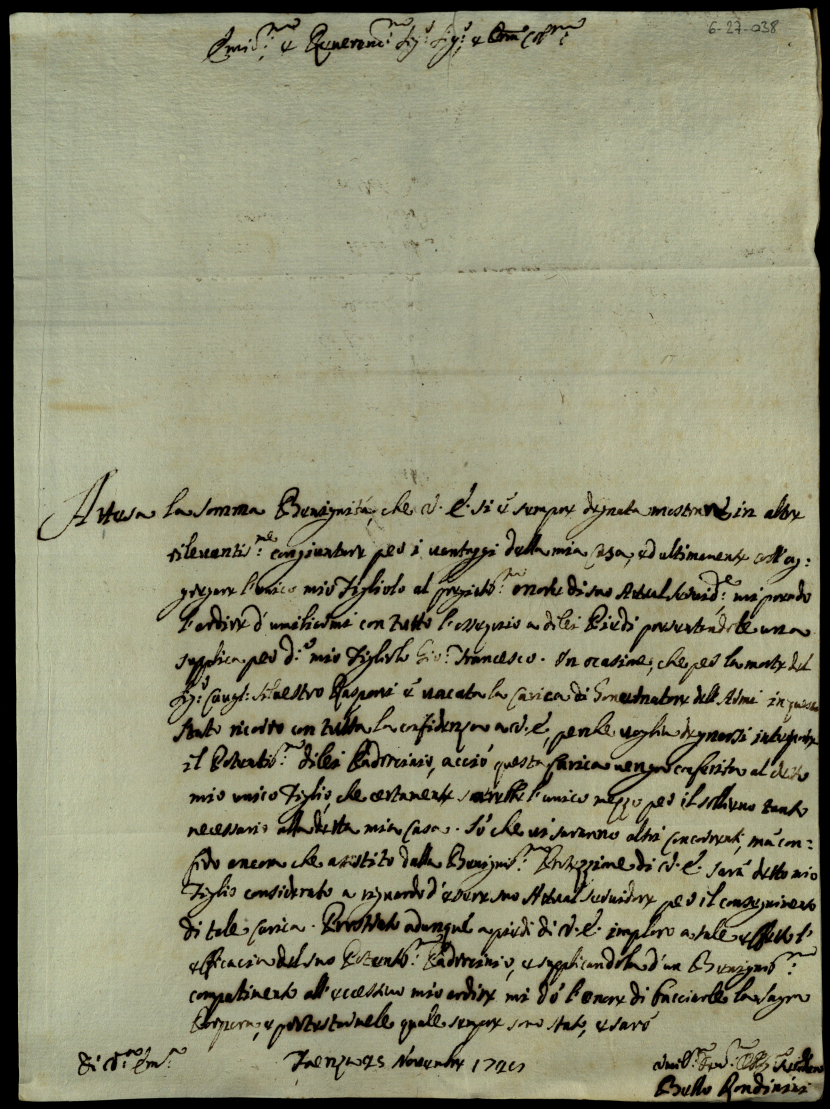 6-27-038
Emi.mo e Reverend.mo Sig.r Sig.r e Col.mo
Attesa la somma Benignità, che V. E. si è sempre degnata mostrare in altre
rilevantis.me congiunture per i vantaggi della mia Casa, ed ultimamente coll'ag:
gregare l'unico mio Figliolo al pregiatis.mo onore di suo Attual Servid.re mi prendo
l'ardire d'umiliarmi con tutto l'ossequio a di lei Piedi presentandole una
supplica per d.o mio Figliolo Gio: Francesco. In ocasione, che per la morte del
Sig.r Cavgl: Silvestro Rasponi è vacata la Carica di Governatore dell'Armi in questo
Stato ricorro con tutta la confidenza a V. E., perche voglia degnarsi interporre
il Potentis.mo di lei Padrocinio, acciò questa Carica venga conferita al detto
mio unico Figlio, che certamente sarebbe l'unico mezzo per il sollievo tanto
necessario alla detta mia Casa. Sò che vi saranno altri Concorrenti, mà con=
fido ancora che assistito dalla Benignis.ma Protezzione di V. E. sarà detto mio
Figlio considerato a riguardo d'essere suo Attual Servidore per il conseguimento
di tale Carica. Prostrato adunque a piedi di V. E. imploro a tale effetto l'
efficacia del suo Potentis.mo Padrocinio, e supplicandola d'un Benignis.mo
compatimento all'eccessivo mio ardire mi dò l'onore di bacciarle la Sagra
Porpora, e protestarmele quale sempre sono stato, e sarò
Di V.ra Em.za
Faenza 25 Novembre
Umil.mo
Rondinini